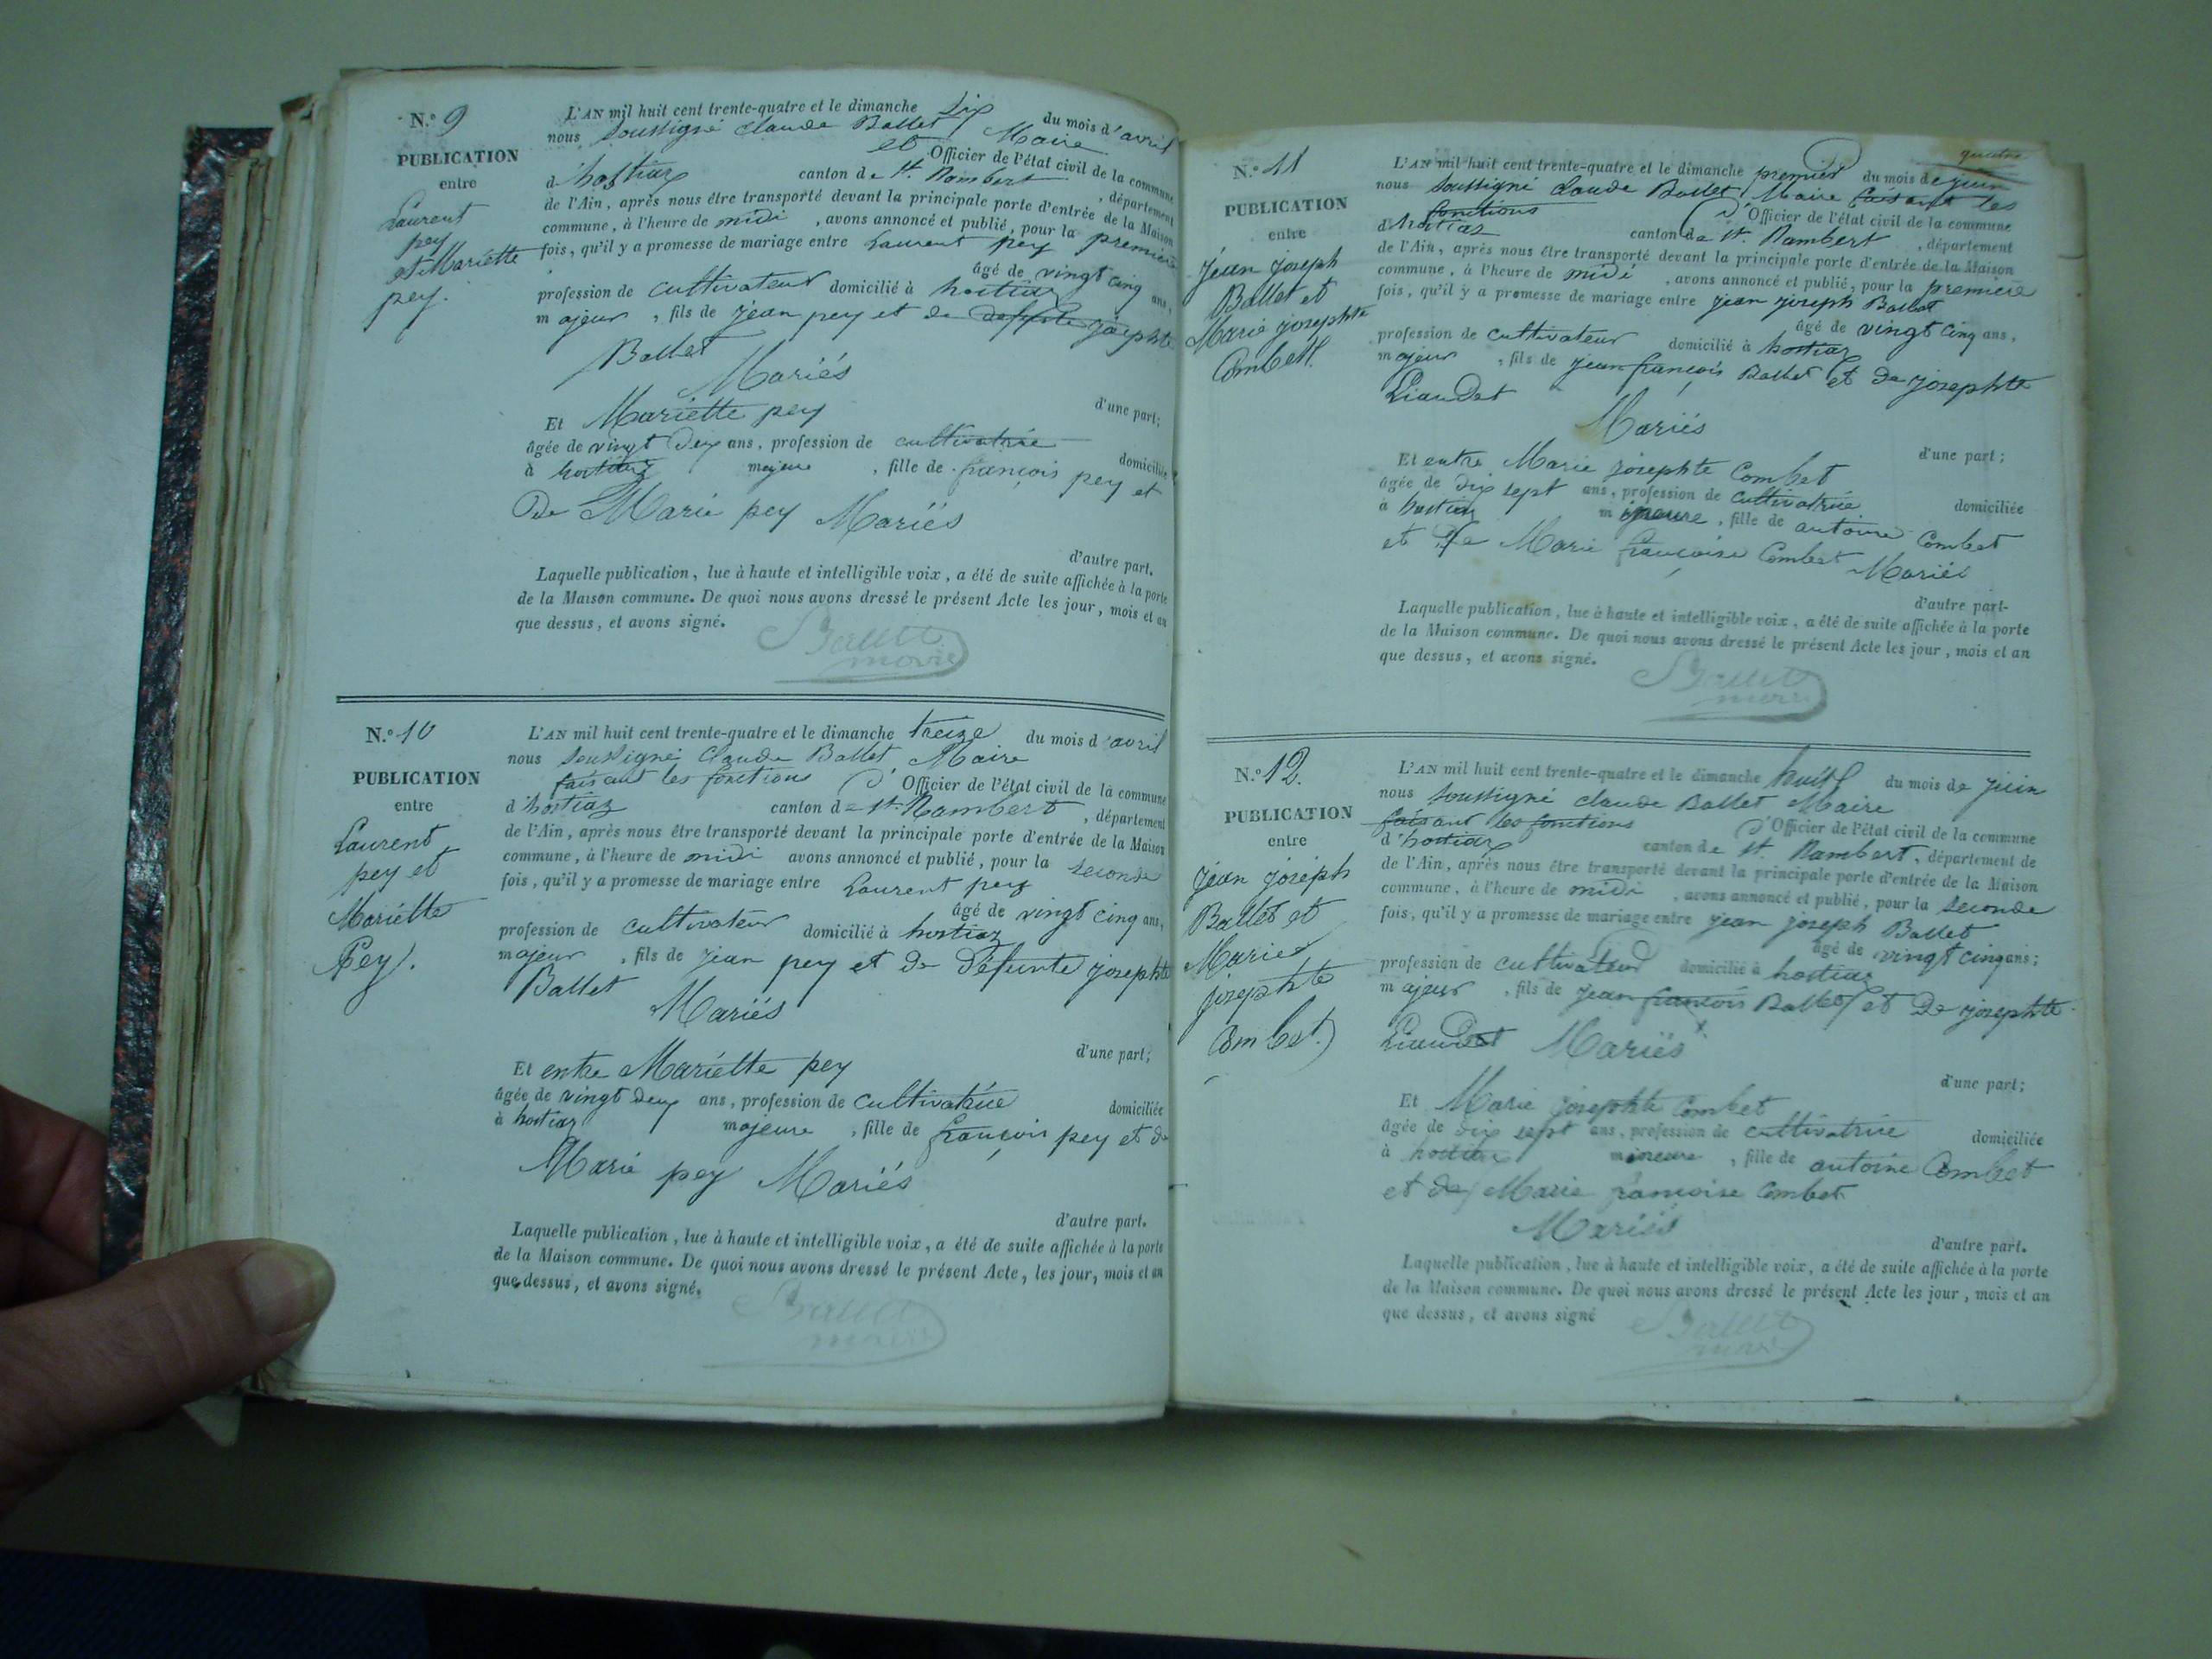 N.º 9
PUBLICATION
entre
Laurent
pey
et Mariette
pey.
L'AN mil huit cent trente-quatre et le dimanche six du mois d'avril
nous soussigné Claude Ballet Maire
et Officier de l'état civil de la commune
d'hostiaz canton de St. Rambert , département
de l'Ain, après nous être transporté devant la principale porte d'entrée de la Maison
commune, à l'heure de midi , avons annoncé et publié, pour la première
fois, qu'il y a promesse de mariage entre Laurent pey
âgé de vingt cinq ans,
profession de cultivateur domicilié à hostiaz
majeur , fils de jean pey et de josephte
Ballet
Mariés
d'une part;
Et Mariette pey
âgée de vingt deux ans, profession de cultivatrice domiciliée
à hostiaz majeure , fille de françois pey et
De Marie pey Mariés
d'autre part.
Laquelle publication, lue à haute et intelligible voix, a été de suite affichée à la porte
de la Maison commune. De quoi nous avons dressé le présent Acte les jour, mois et an
que dessus, et avons signé.
Ballet
maire
N.º 10
PUBLICATION
entre
Laurent
pey et
Mariette
Pey.
L'AN mil huit cent trente-quatre et le dimanche treize du mois d'avril
nous soussigné Claude Ballet Maire
faisant les fonctions d'Officier de l'état civil de la commune
d'hostiaz canton de St. Rambert , département
de l'Ain, après nous être transporté devant la principale porte d'entrée de la Maison
commune, à l'heure de midi avons annoncé et publié, pour la seconde
fois, qu'il y a promesse de mariage entre Laurent pey
âgé de vingt cinq ans,
profession de cultivateur domicilié à hostiaz
majeur , fils de jean pey et de défunte josephte
Ballet
Mariés
d'une part;
Et entre Mariette pey
âgée de vingt deux ans, profession de cultivatrice domiciliée
à hostiaz majeure , fille de françois pey et de
Marie pey Mariés
d'autre part.
Laquelle publication, lue à haute et intelligible voix, a été de suite affichée à la porte
de la Maison commune. De quoi nous avons dressé le présent Acte, les jour, mois et an
que dessus, et avons signé.
Ballet
maire
quatre
N.º 11
PUBLICATION
entre
jean joseph
Ballet et
Marie josephte
Combet.
L'AN mil huit cent trente-quatre et le dimanche premier du mois de juin
nous soussigné Claude Ballet Maire faisant les
fonctions d'Officier de l'état civil de la commune
d'hostiaz canton de St. Rambert , département
de l'Ain, après nous être transporté devant la principale porte d'entrée de la Maison
commune, à l'heure de midi , avons annoncé et publié, pour la première
fois, qu'il y a promesse de mariage entre jean joseph Ballet
âgé de vingt cinq ans,
profession de cultivateur domicilié à hostiaz
majeur , fils de jean françois Ballet et de josephte
Liaudet
Mariés
d'une part;
Et entre Marie josephte Combet
âgée de dix sept ans, profession de cultivatrice domiciliée
à hostiaz mineure , fille de antoine Combet
et De Marie françoise Combet Mariés
d'autre part.
Laquelle publication, lue à haute et intelligible voix, a été de suite affichée à la porte
de la Maison commune. De quoi nous avons dressé le présent Acte les jour, mois et an
que dessus, et avons signé.
Ballet
maire
N.º 12.
PUBLICATION
entre
jean joseph
Ballet et
Marie
josephte
Combet.
L'AN mil huit cent trente-quatre et le dimanche huit du mois de juin
nous soussigné claude Ballet Maire
faisant les fonctions d'Officier de l'état civil de la commune
d'hostiaz canton de St. Rambert, département de
de l'Ain, après nous être transporté devant la principale porte d'entrée de la Maison
commune, à l'heure de midi , avons annoncé et publié, pour la seconde
fois, qu'il y a promesse de mariage entre jean joseph Ballet
âgé de vingt cinq ans;
profession de cultivateur domicilié à hostiaz
majeur , fils de jean françois Ballet et De josephte
Liaudet Mariés
d'une part;
Et Marie josephte Combet
âgée de dix sept ans, profession de cultivatrice domiciliée
à hostiaz mineure , fille de antoine Combet
et de Marie françoise Combet
Mariés
d'autre part.
Laquelle publication, lue à haute et intelligible voix, a été de suite affichée à la porte
de la Maison commune. De quoi nous avons dressé le présent Acte les jour, mois et an
que dessus, et avons signé
Ballet
maire